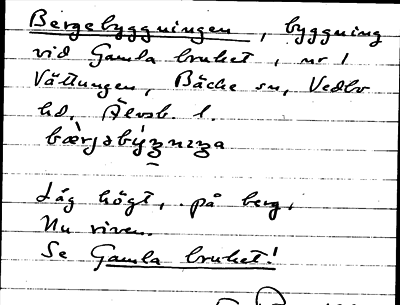 Bergebyggningen, byggning
vid Gamla bruket, nr 1
Vättungen, Bäcke sn, Vedbo
hd, Älvsb. l.
Låg högt, på berg.
Nu riven.
Se Gamla bruket!